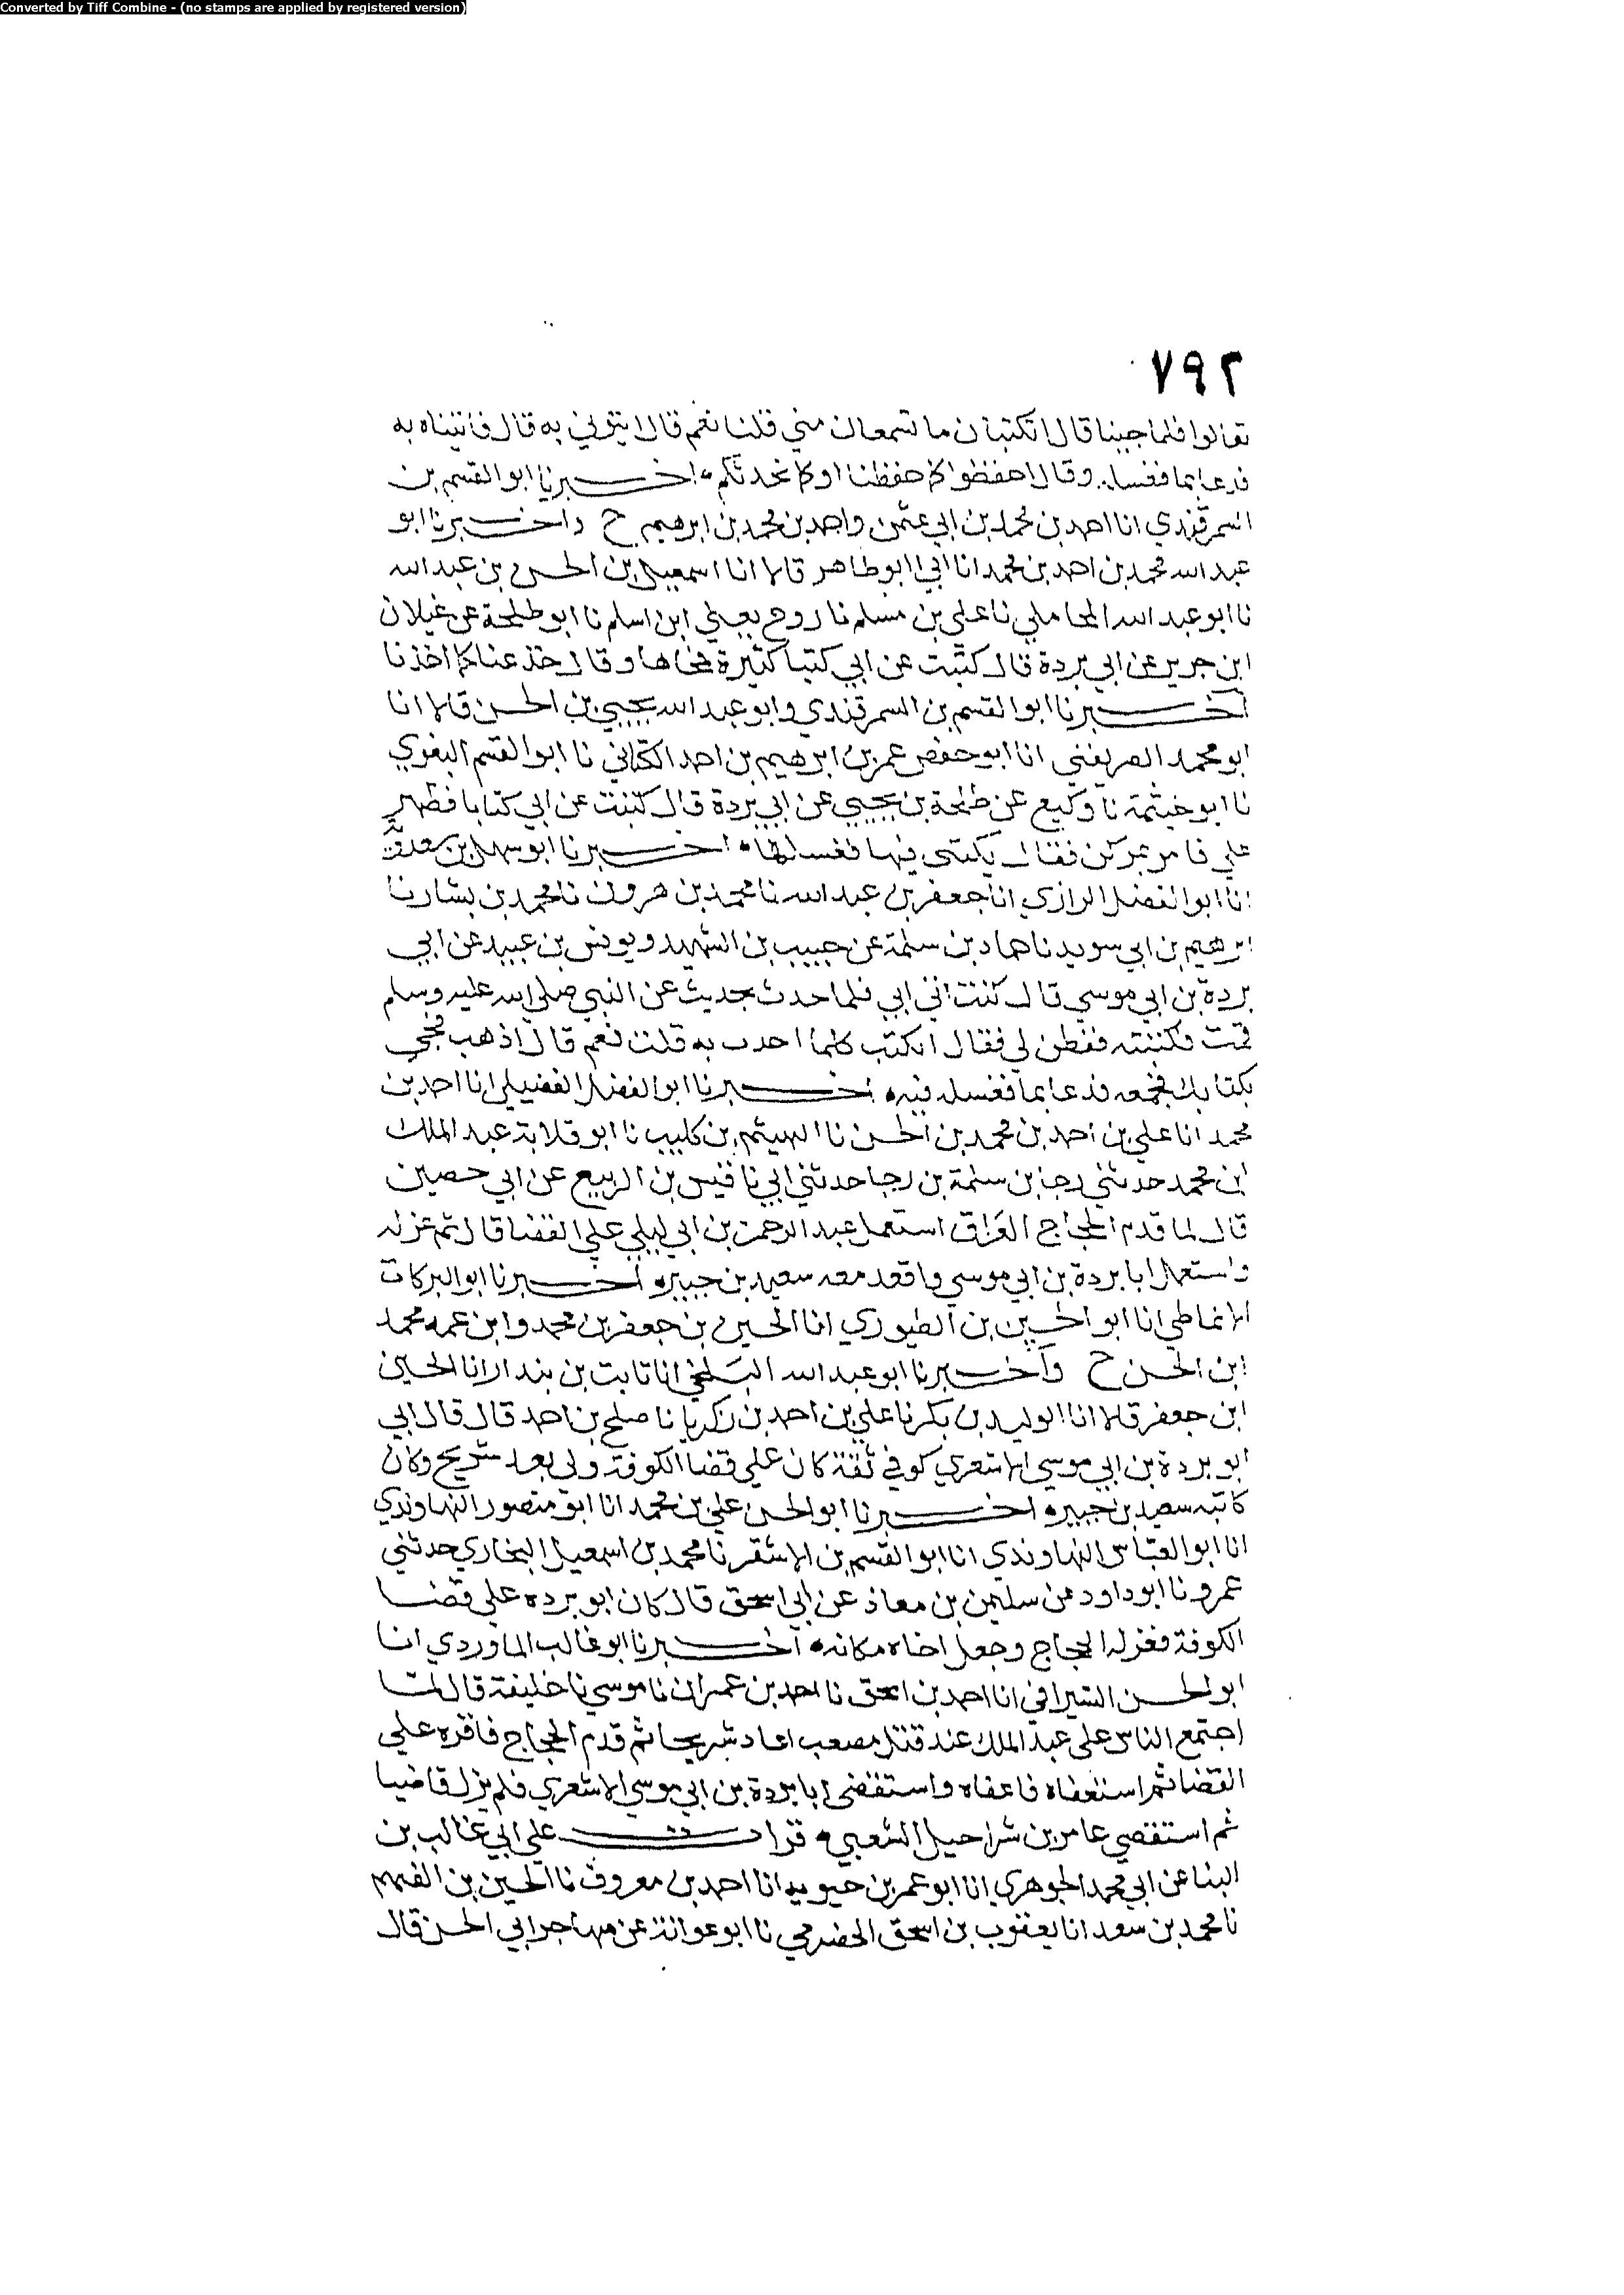 Converted by Tiff Combine - (no stamps are applied by registered version)
٧٩٢
تعالوا فلما جينا قال اتكتبان ما تسمعان مني قلنا نعم قال ايتوني به قال فاتيناه به
فدعا بما فغسله وقال احفظوا كما حفظنا او كما نحدثكم اخبرنا ابو القسم بن
السمرقندي انا احمد بن محمد بن ابي عثمن واحمد بن محمد بن ابرهيم ح واخبرنا ابو
عبد الله محمد بن احمد بن محمد انا ابي ابو طاهر قالا انا اسمعيل بن الحسن بن عبد الله
نا ابو عبد الله المحاملي نا علي بن مسلم نا روح يعني ابن اسلم نا ابو طلحة عن غيلان
ابن جرير عن ابي بردة قال كتبت عن ابي كتبا كثيرة فمحاها وقال خذ عنا كما اخذنا
اخبرنا ابو القسم بن السمرقندي وابو عبد الله يحيي بن الحسن قالا انا
ابو محمد الصريفني انا ابو حفص عمر بن ابرهيم بن احمد الكتاني نا ابو القسم البغوي
نا ابو خيثمة نا وكيع عن طلحة بن يحيي عن ابي بردة قال كتبت عن ابي كتابا فظهر
علي فامر بمركن فقال بكتبي فيها فغسلها اخبرنا ابو سهل بن سعدويه
انا ابو الفضل الرازي انا جعفر بن عبد الله نا محمد بن هرون نا محمد بن بشار نا
ابرهيم بن ابي سويد نا حماد بن سلمة عن حبيب بن الشهيد ويونس بن عبيد عن ابي
بردة بن ابي موسي قال كنت اتي ابي فلما حدث بحديث عن النبي صلي الله عليه وسلم
قمت فكتبته ففطن لي فقال اتكتب كلما احدث به قلت نعم قال اذهب فجي
بكتابك فجمعه فدعا بما فغسله فيه اخبرنا ابو الفضل الفضيلي انا احمد بن
محمد انا علي بن احمد بن محمد بن الحسن نا الهيثم بن كليب نا ابو قلابة عبد الملك
ابن محمد حدثني رجا بن سلمة بن رجا حدثني ابي نا قيس بن الربيع عن ابي حصين
قال لما قدم الحجاج العراق استعمل عبد الرحمن بن ابي ليلي علي القضا قال ثم عزله
واستعمل ابا بردة بن ابي موسي واقعد معه سعيد بن جبير اخبرنا ابو البركات
الانماطي انا ابو الحسين بن الطيوري انا الحسين بن جعفر بن محمد وابن عمه محمد
ابن الحسن ح واخبرنا ابو عبد الله البلخي انا ثابت بن بندار انا الحسين
ابن جعفر قالا انا الوليد بن بكر نا علي بن احمد بن زكريا نا صلح بن احمد قال قال ابي
ابو بردة بن ابي موسي الاشعري كوفي ثقة كان علي قضا الكوفة ولي بعد شريح وكان
كاتبه سعيد بن جبير اخبرنا ابو الحسن علي بن محمد انا ابو منصور النهاوندي
انا ابو العباس النهاوندي انا ابو القسم بن الاشقر نا محمد بن اسمعيل البخاري حدثني
عمرو نا ابو داود عن سليمن بن معاذ عن ابي اسحق قال كان ابو برده علي قضا
الكوفة فعزله الحجاج وجعل اخاه مكانه اخبرنا ابو غالب الماوردي انا
ابو الحسن السيرافي انا احمد بن اسحق نا احمد بن عمران نا موسي نا خليفة قال لما
اجتمع الناس علي عبد الملك عند قتل مصعب اعاد شريحا ثم قدم الحجاج فاقره علي
القضا ثم استعفاه فاعفاه واستقضي ابا بردة بن ابي موسي الاشعري فلم يزل قاضيا
ثم استقضي عامر بن شراحيل الشعبي قرات علي ابي غالب بن
البنا عن ابي محمد الجوهري انا ابو عمر بن حيويه انا احمد بن معروف نا الحسين بن الفهم
نا محمد بن سعد انا يعقوب بن اسحق الحضرمي نا ابو عوانة عن مهاجر ابي الحسن قال